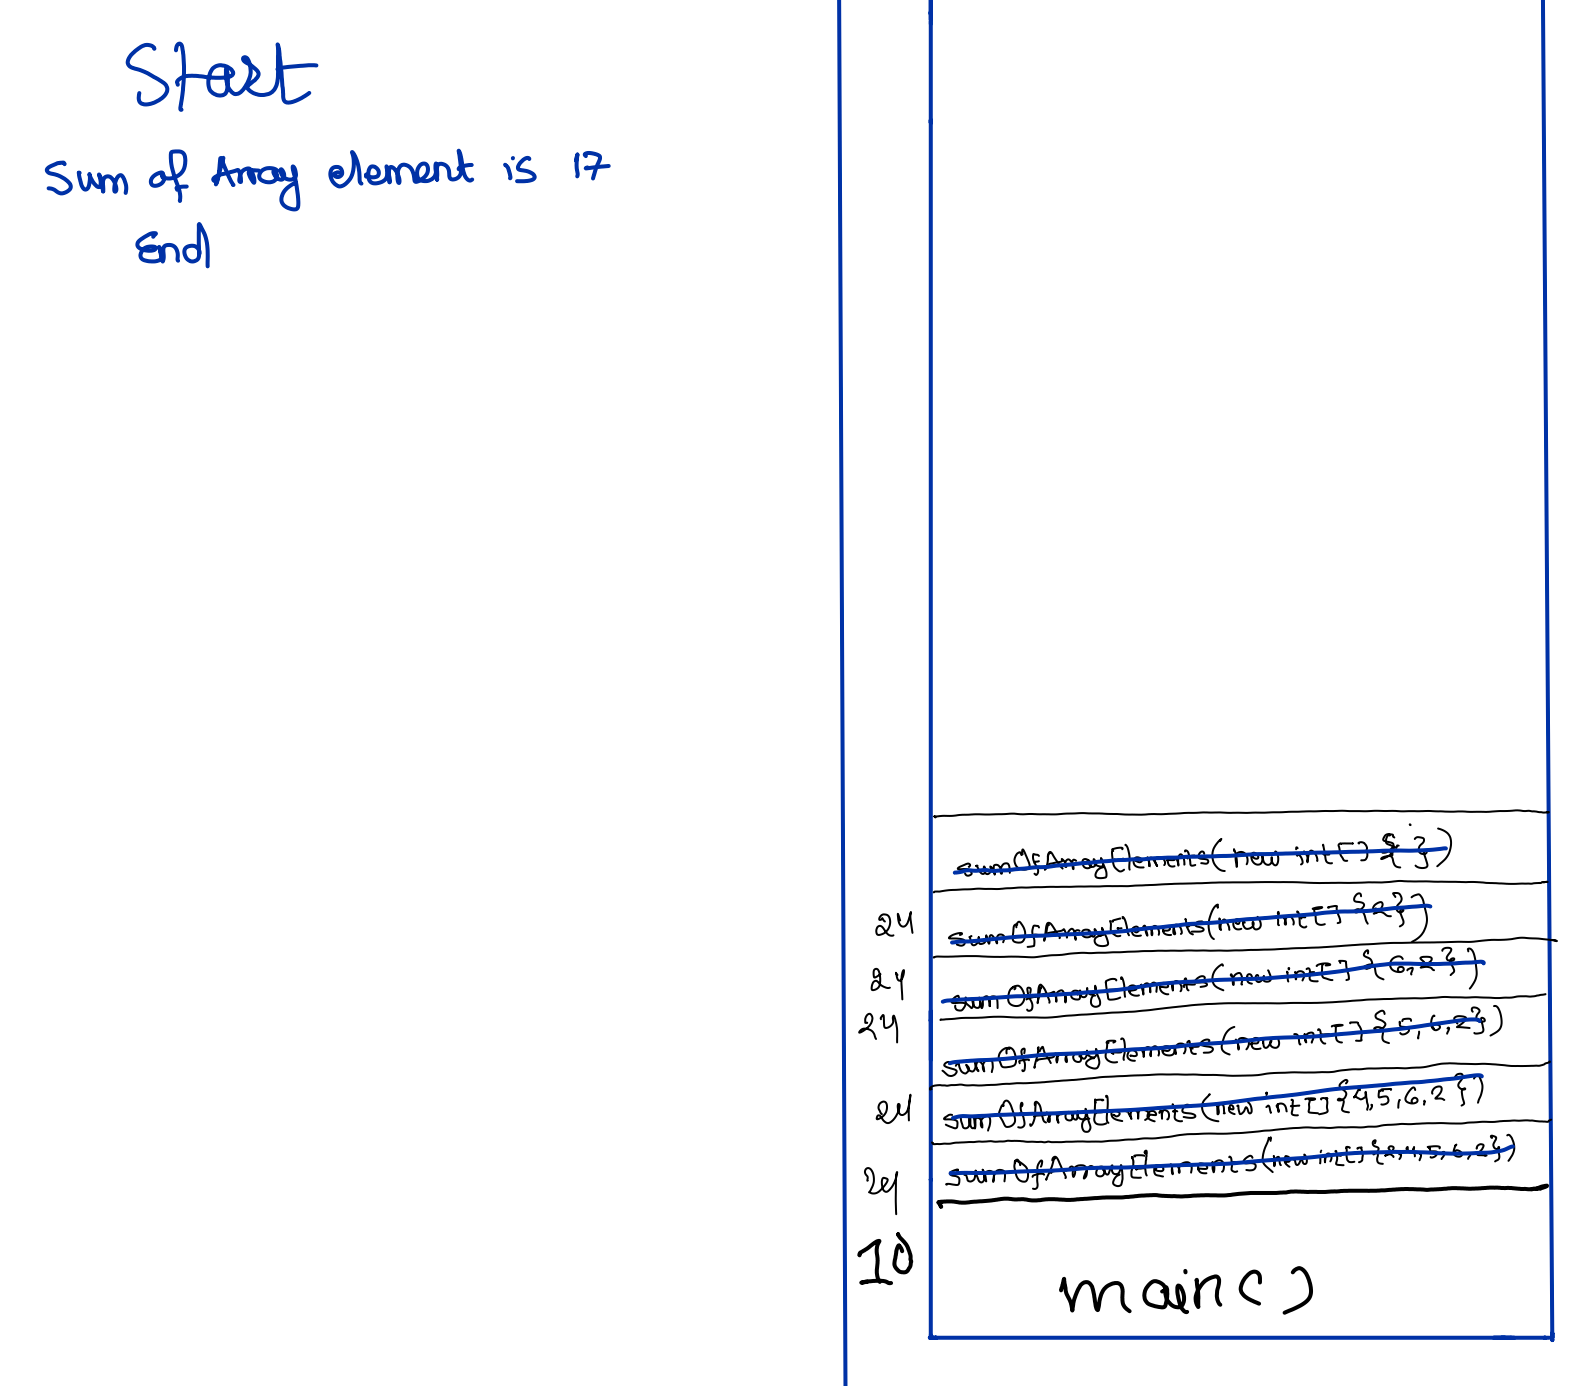 Start
Sum of Array element is 17
End
sumOfArrayElements(new int[] { })
24 sumOfArrayElements(new int[] {2})
24 sumOfArrayElements(new int[] {6,2})
24 sumOfArrayElements(new int[] {5,6,2})
24 sumOfArrayElements(new int[] {4,5,6,2})
24 sumOfArrayElements(new int[] {2,4,5,6,2})
10 main()